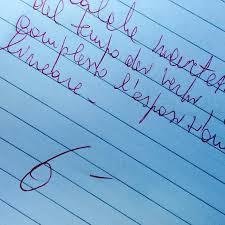 qualche incertez
del tempo dei verbi
complesso l'esposizion
lineare -
6 -